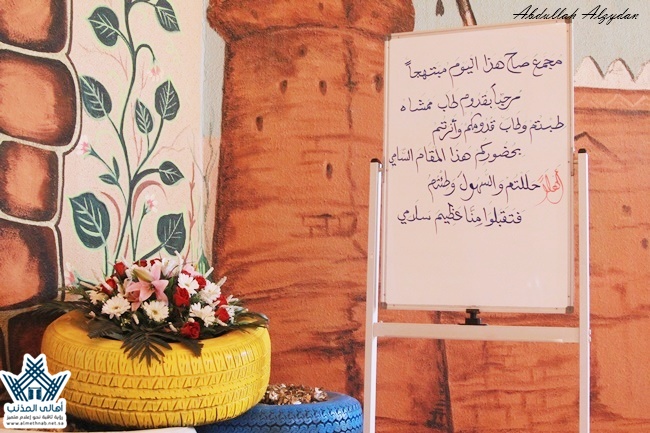 Abdullah Alzydan
مجمع صاح هذا اليوم مبتهجاً
مرحباً بقدوم طاب ممشاه
طبتم وطاب قدومكم وأنرتم
بحضوركم هذا المقام السامي
أهلاً حللتم والسهول وطئتم
فتقبلوا منا عظيم سلامي
أهالي المذنب
رؤية ثاقبة نحو إعلام متميز
www.almethnab.net.sa